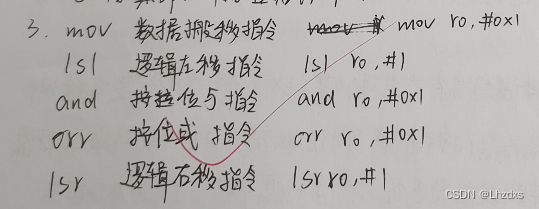 3. mov 数据搬移指令 mov r0, #0x1
lsl 逻辑左移指令 lsl r0, #1
and 按位与指令 and r0, #0x1
orr 按位或指令 orr r0, #0x1
lsr 逻辑右移指令 lsr r0, #1
CSDN @Lhzdxs